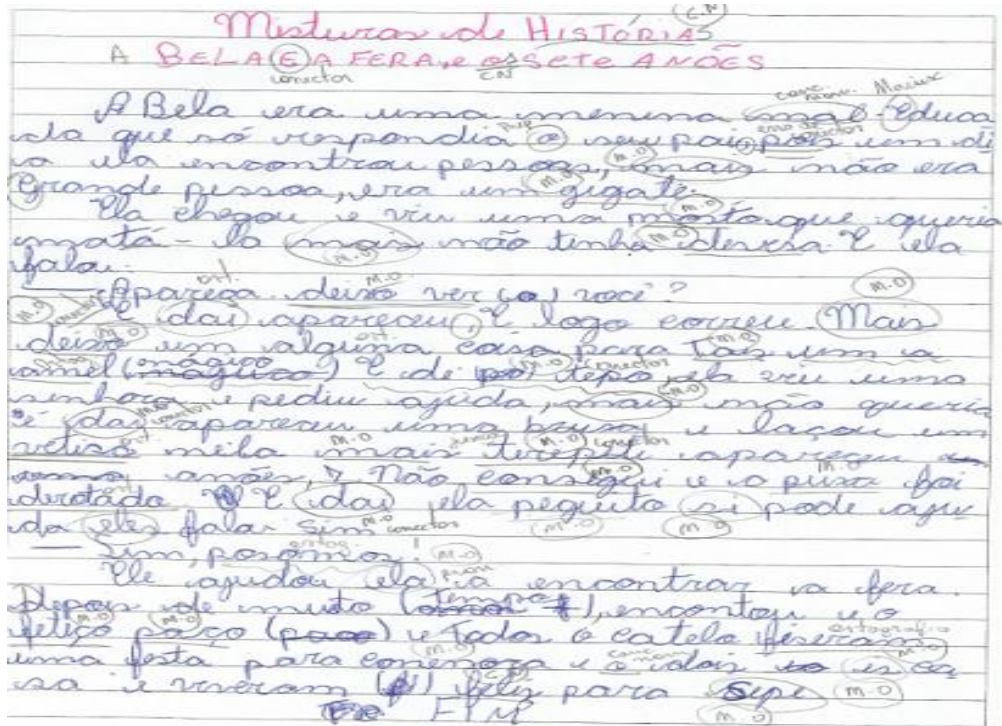 Misturas de HISTÓRIAS (C.N)
A BELA E A FERA, e os SETE ANÕES
conector CN
A Bela era uma menina mal-Educa
da que só respondia o seu pai, pois um di
a ela encontrou pessoas, mais não era
Grande pessoa, era um gigate.
Ela chegou e viu uma mosta que queria
matá-la mas não tinha devesa. E ela
falou:
— Apareça deixo ver (o) você?
E daí apareceu, E logo correu. Mais
deixo um alguma casa para Tais um a
amel (mágico) E de (po) tepo, ela viu uma
senhora e pediu ajuda, mais não queria
e daí apareceu uma bruxa e laçou um
vetiso nela mais terepite apareceu
anões, Não consegui e o puxa foi
derotado E daí ela peguto si pode aju
da eles fala Sim
— Sim, posomos!
Ele ajudou ela a encontrar a fera.
Depois de muito (tempo), encontou e o
fetiço paço (paco) e Todos o catelo fiseram
uma festa para comemora e o dois
sa e viveram felis para Sepe
FIM